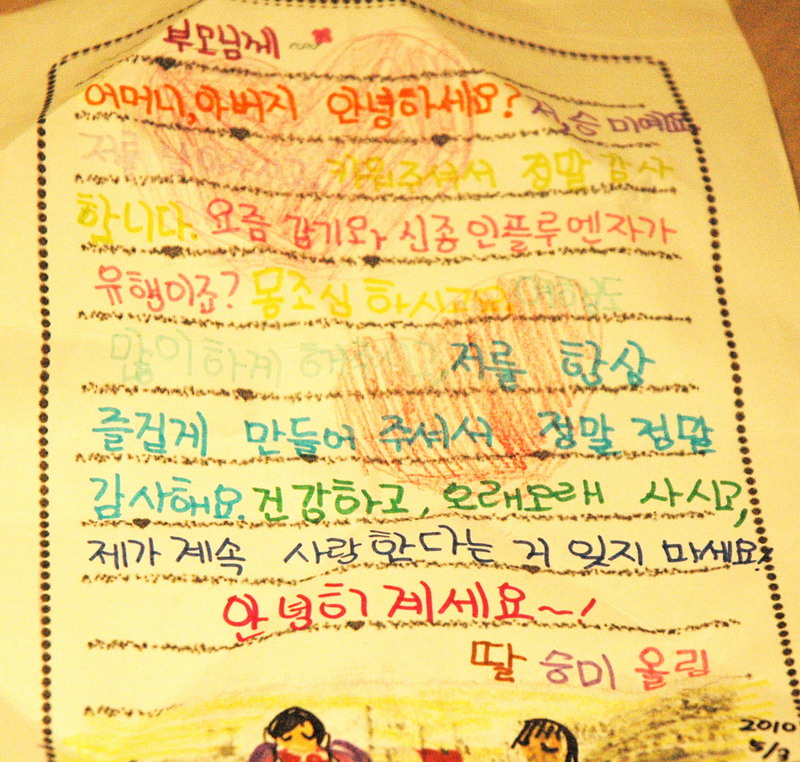 부모님께~
어머니, 아버지 안녕하세요? 저, 승미예요.
저를 키워주셔서 정말 감사
합니다. 요즘 감기와 신종인플루엔자가
유행이죠? 몸조심 하시고
많이 하게 저를 항상
즐겁게 만들어 주셔서 정말 정말
감사해요. 건강하고, 오래오래 사시고,
제가 계속 사랑한다는 거 잊지 마세요.
안녕히 계세요~!
딸 승미 올림
2010
5/3